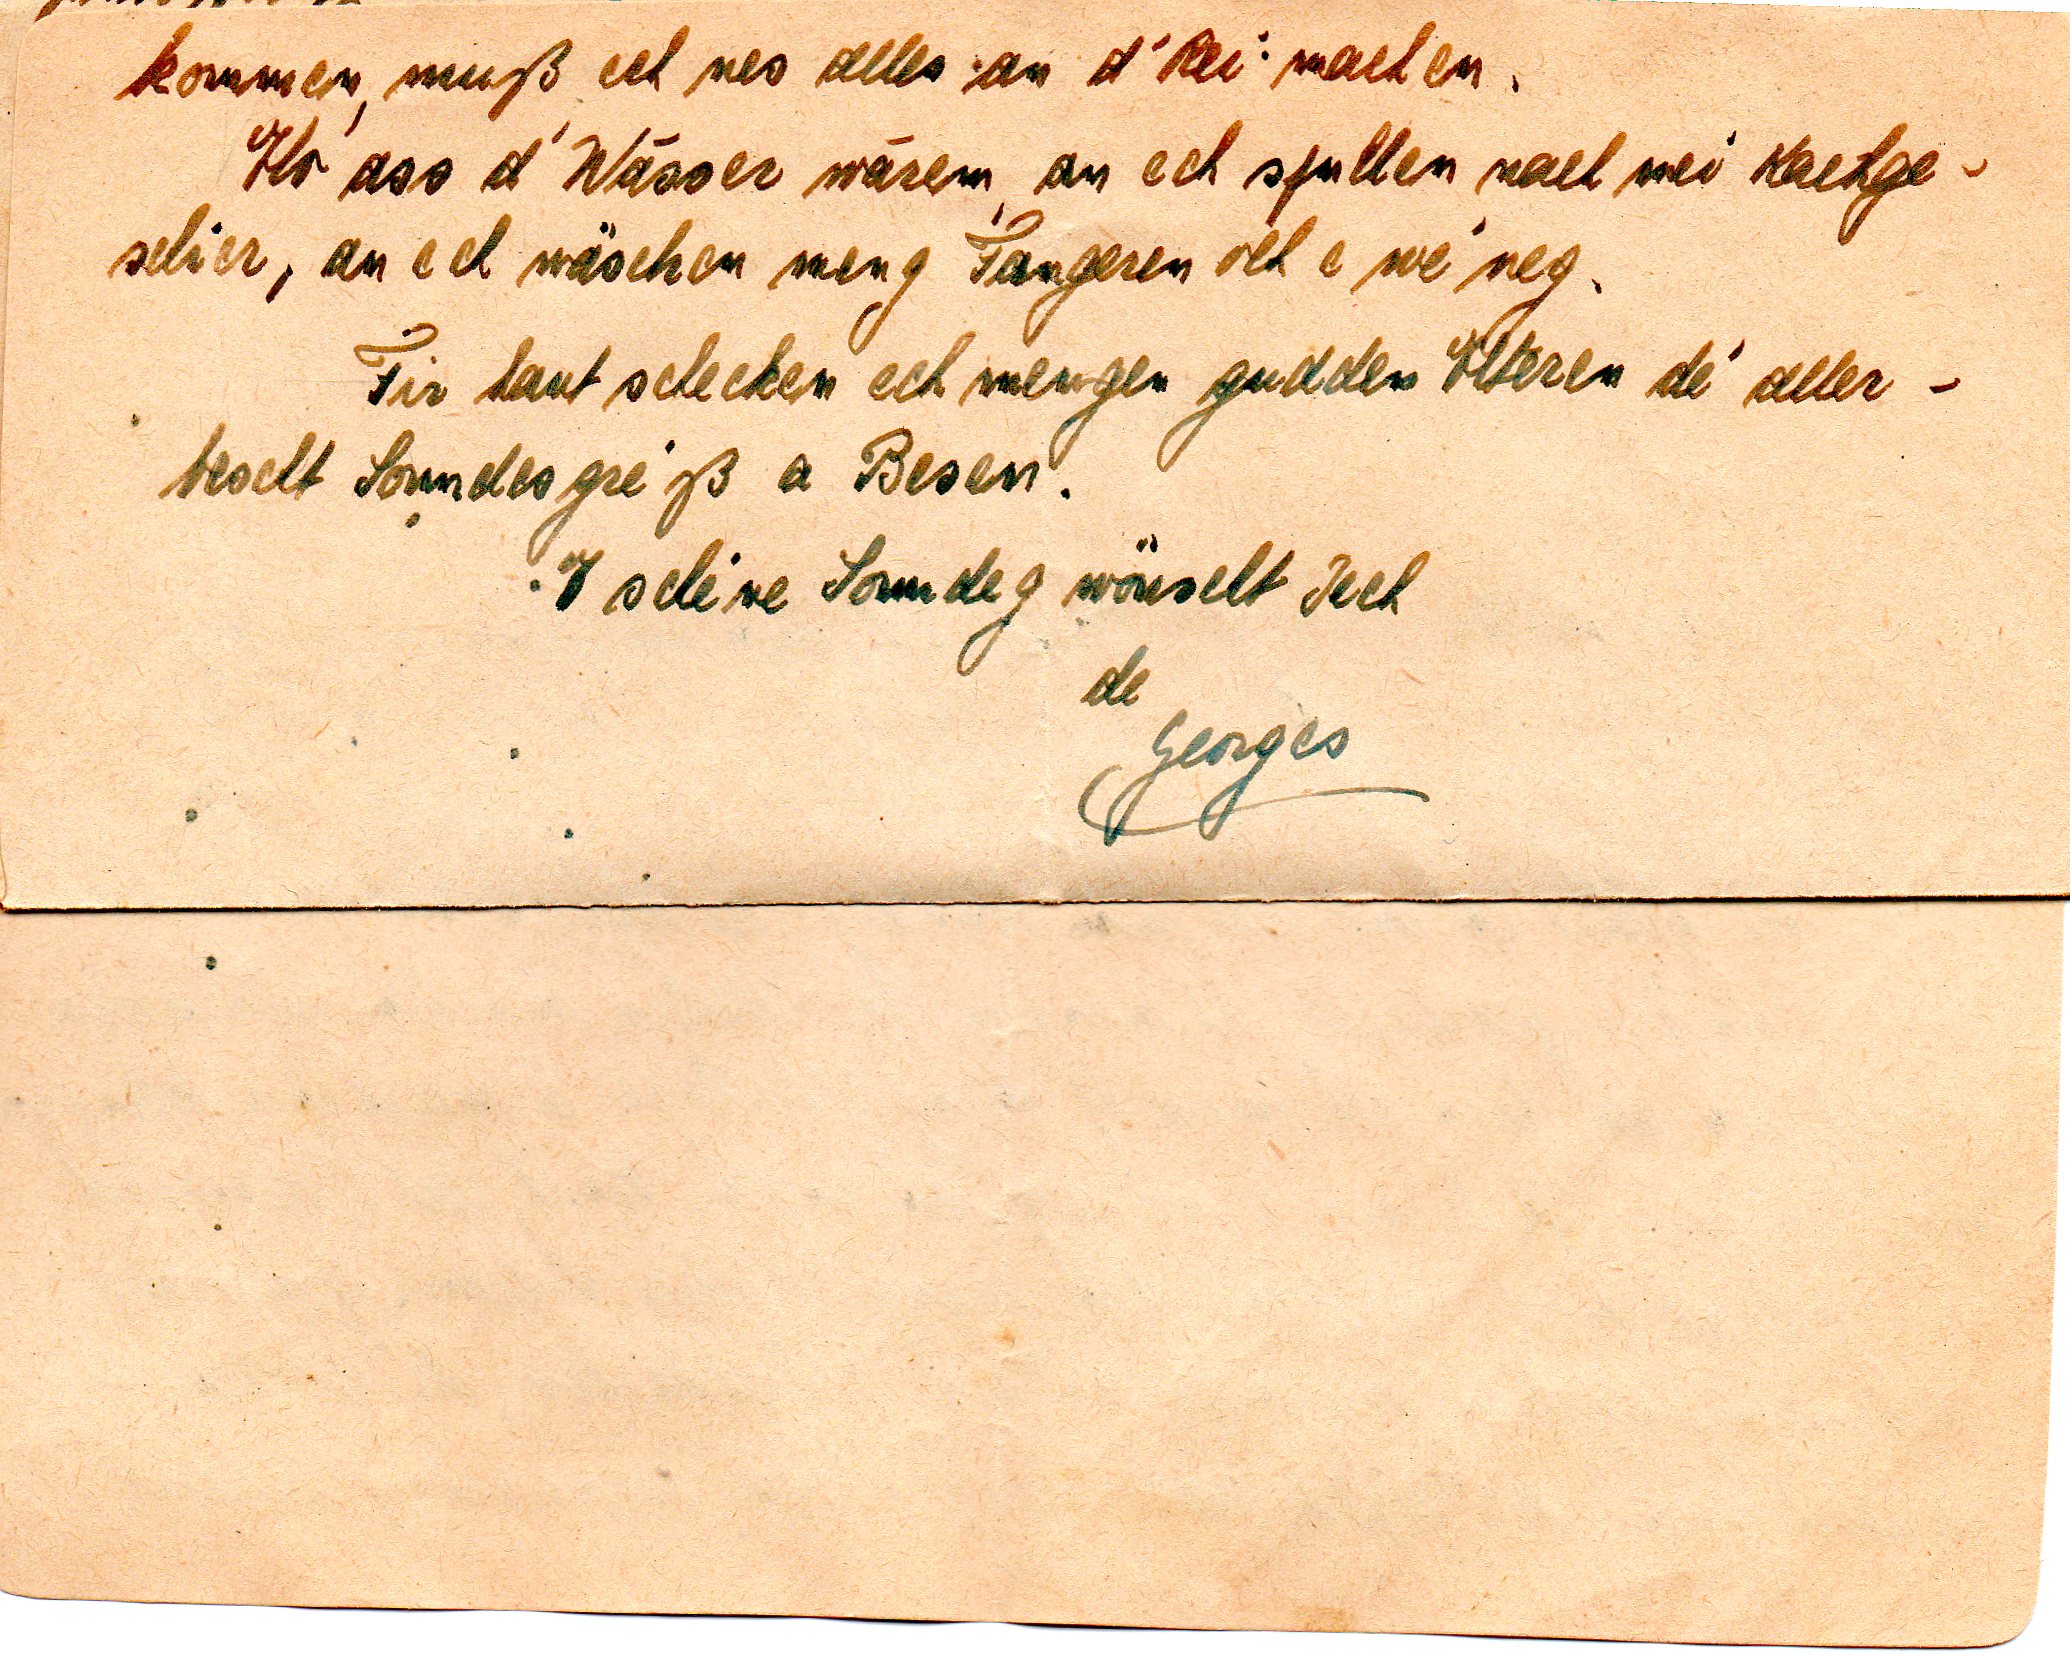 kommen, muß ech nes alles an d' Rei machen.
Ho' ass d' Wässer wärem, an ech spullen nach mei Kachge-
schier, an ech wäschen meng Fangeren och e we'neg.
Fir haut schecken ech mengen gudden Elteren de' aller-
bescht Sonndesgre'ß a Besen.
E sche'ne Sonndeg wönscht Iech
de
Georges